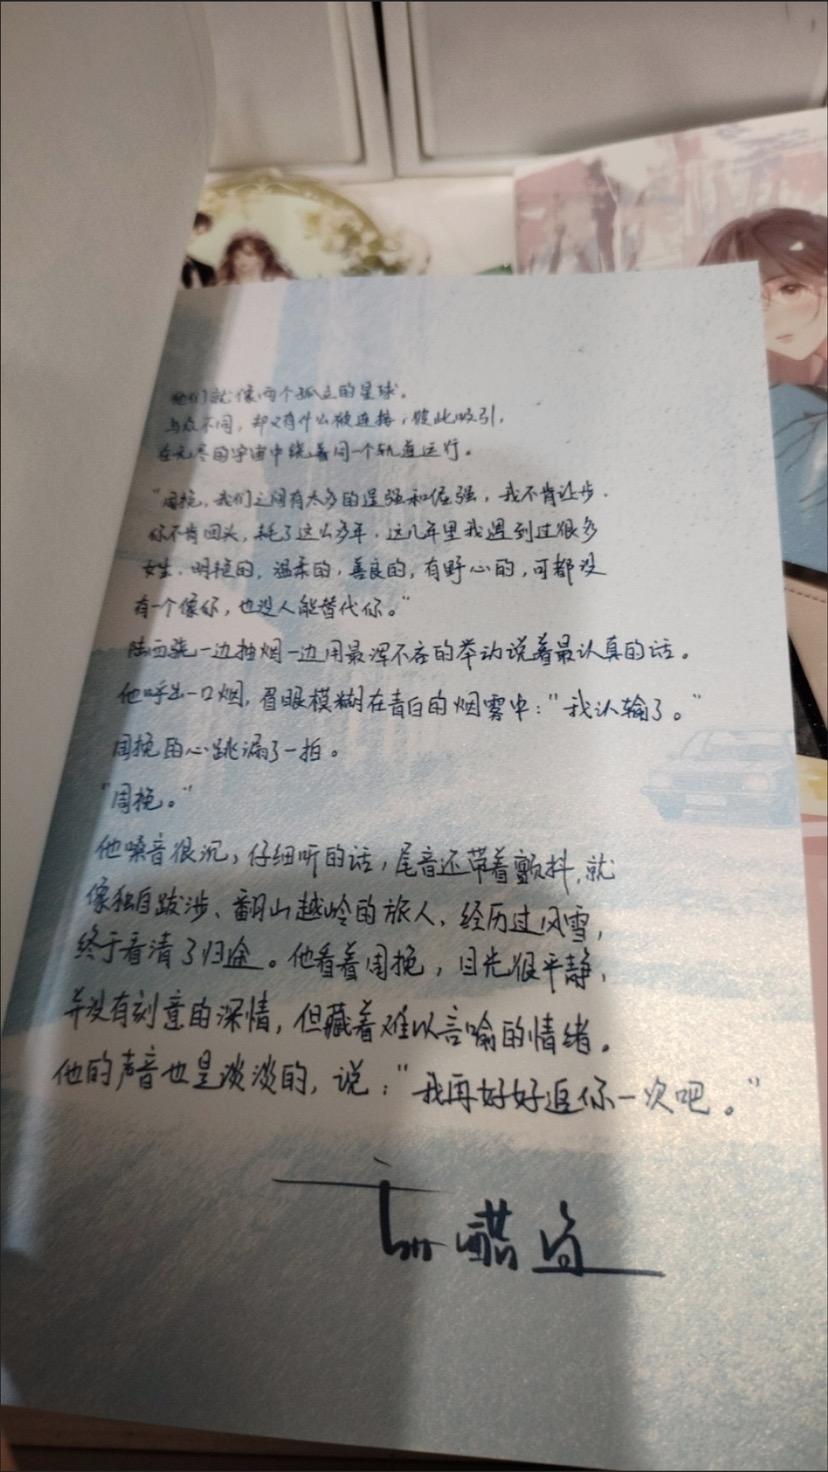 他们就像两个孤立的星球。
与众不同，却又有什么被连接，彼此吸引，
在无尽的宇宙中绕着同一个轨道运行。
“周挽，我们之间有太多的逞强和倔强，我不肯让步，
你不肯回头，耗了这么多年，这几年里我遇到过很多
女生，明艳的，温柔的，善良的，有野心的，可都没
有一个像你，也没人能替代你。”
陆西骁一边抽烟一边用最浑不吝的举动说着最认真的话。
他呼出一口烟，眉眼模糊在青白的烟雾中：“我认输了。”
周挽的心跳漏了一拍。
“周挽。”
他嗓音很沉，仔细听的话，尾音还带着颤抖，就
像独自跋涉、翻山越岭的旅人，经历过风雪，
终于看清了归途。他看着周挽，目光很平静，
并没有刻意的深情，但藏着难以言喻的情绪。
他的声音也是淡淡的，说：“我再好好追你一次吧。”
甜醋鱼